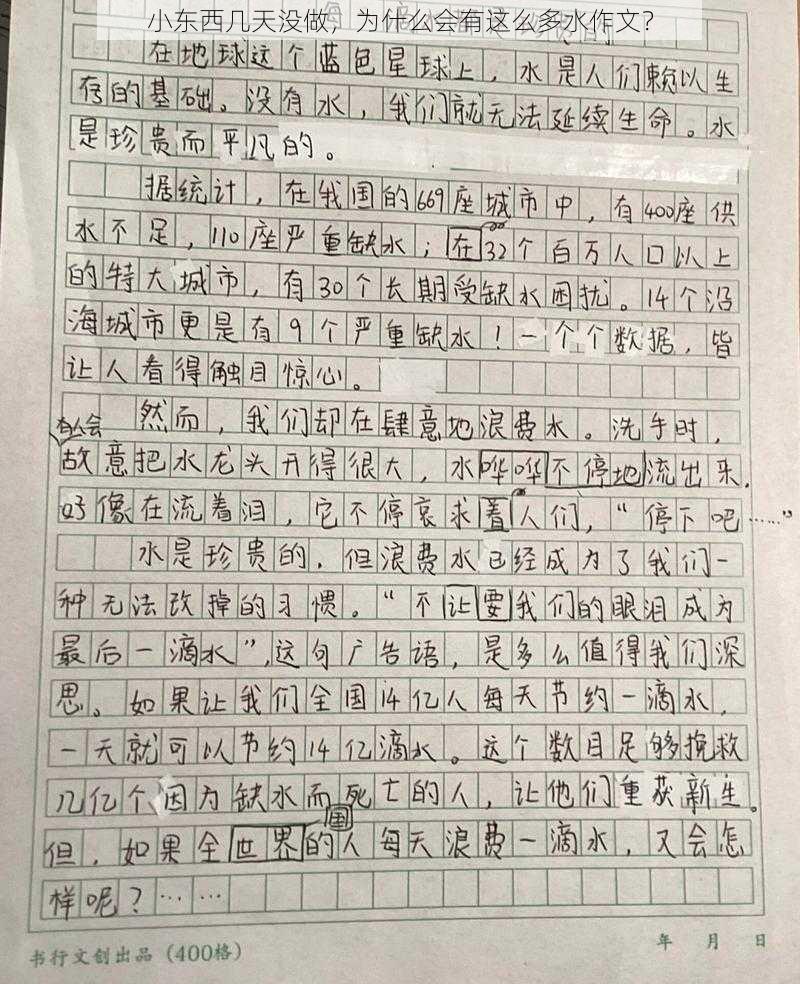 小东西几天没做，为什么会有这么多水作文？
在地球这个蓝色星球上，水是人们赖以生
存的基础。没有水，我们就无法延续生命。水
是珍贵而平凡的。
据统计，在我国的669座城市中，有400座供
水不足，110座严重缺水；在32个百万人口以上
的特大城市，有30个长期受缺水困扰。14个沿
海城市更是有9个严重缺水！一个个数据，皆
让人看得触目惊心。
然而，我们却在肆意地浪费水。洗手时，
有人会
故意把水龙头开得很大，水哗哗不停地流出来，
好像在流着泪，它不停哀求着人们，“停下吧……”
水是珍贵的，但浪费水已经成为了我们一
种无法改掉的习惯。“不让要我们的眼泪成为
最后一滴水”，这句广告语，是多么值得我们深
思。如果让我们全国14亿人每天节约一滴水，
一天就可以节约14亿滴水。这个数目足够挽救
几亿个因为缺水而死亡的人，让他们重获新生。
国
但，如果全世界的人每天浪费一滴水，又会怎
样呢？……
书行文创出品（400格）
年 月 日